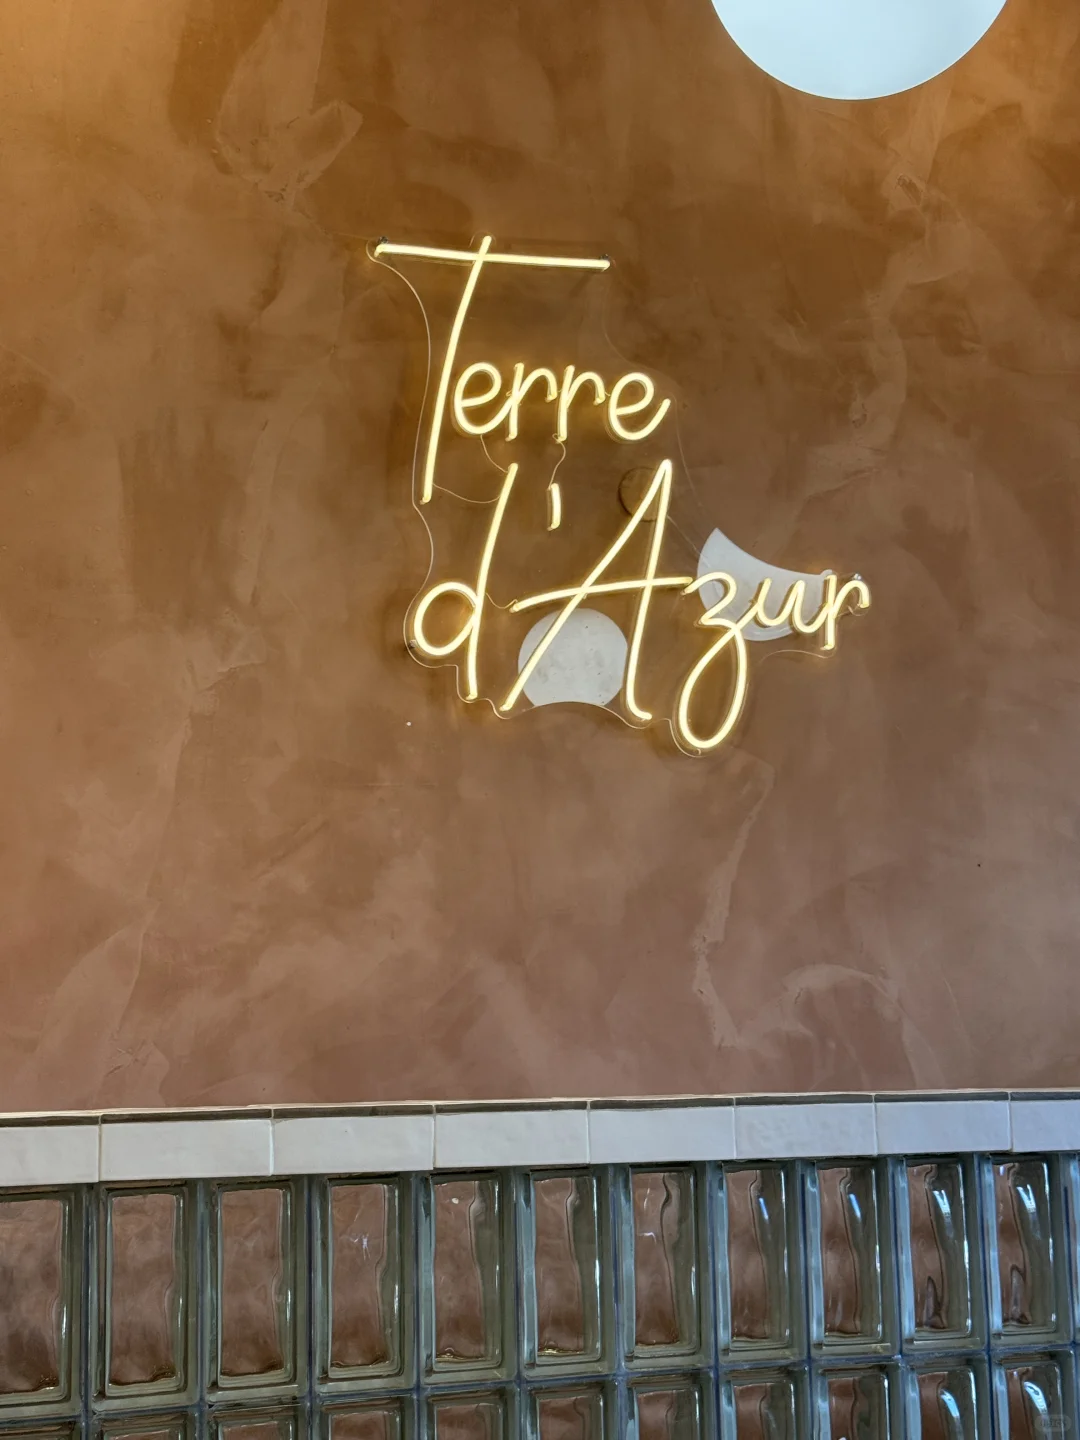 Terre
d'Azur